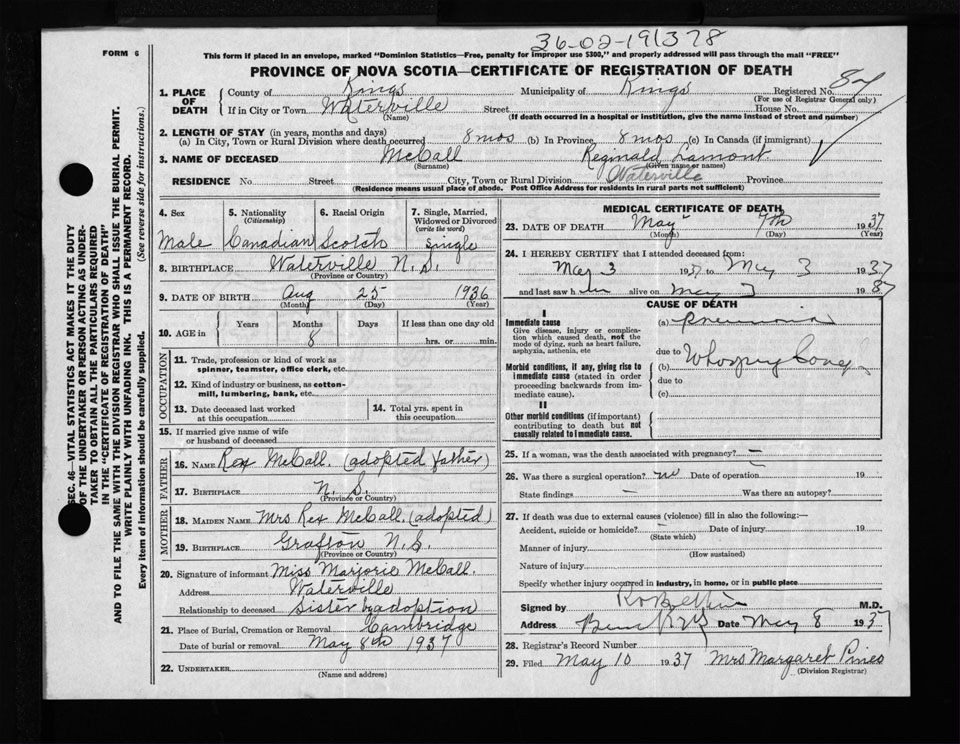 36-02-191378
FORM 6
This form if placed in an envelope, marked "Dominion Statistics—Free, penalty for improper use $300," and properly addressed will pass through the mail "FREE"
PROVINCE OF NOVA SCOTIA—CERTIFICATE OF REGISTRATION OF DEATH
SEC. 46—VITAL STATISTICS ACT MAKES IT THE DUTY
OF THE UNDERTAKER OR PERSON ACTING AS UNDER-
TAKER TO OBTAIN ALL THE PARTICULARS REQUIRED
IN THE "CERTIFICATE OF REGISTRATION OF DEATH"
AND TO FILE THE SAME WITH THE DIVISION REGISTRAR WHO SHALL ISSUE THE BURIAL PERMIT.
WRITE PLAINLY WITH UNFADING INK. THIS IS A PERMANENT RECORD.
Every item of information should be carefully supplied. (See reverse side for instructions.)
1. PLACE OF DEATH County of Kings Municipality of Kings Registered No.
(For use of Registrar General only)
If in City or Town Waterville Street House No.
(Name) (If death occurred in a hospital or institution, give the name instead of street and number)
2. LENGTH OF STAY (in years, months and days)
(a) In City, Town or Rural Division where death occurred 8 mos (b) In Province 8 mos (c) In Canada (if immigrant)
3. NAME OF DECEASED McCall Reginald Lamont
(Surname) (Given name or names)
RESIDENCE No. Street City, Town or Rural Division Waterville Province
(Residence means usual place of abode. Post Office Address for residents in rural parts not sufficient)
4. Sex 5. Nationality (Citizenship) 6. Racial Origin 7. Single, Married, Widowed or Divorced (write the word)
Male Canadian Scotch Single
8. BIRTHPLACE Waterville N.S.
(Province or Country)
9. DATE OF BIRTH Aug 25 1936
(Month) (Day) (Year)
10. AGE in Years Months Days If less than one day old
8 hrs. or min.
OCCUPATION
11. Trade, profession or kind of work as
spinner, teamster, office clerk, etc.
12. Kind of industry or business, as cotton-
mill, lumbering, bank, etc.
13. Date deceased last worked at this occupation 14. Total yrs. spent in this occupation
15. If married give name of wife
or husband of deceased
FATHER
16. NAME Rex McCall. (adopted father)
17. BIRTHPLACE N.S.
(Province or Country)
MOTHER
18. MAIDEN NAME Mrs Rex McCall. (adopted)
19. BIRTHPLACE Grafton N.S.
(Province or Country)
20. Signature of informant Miss Marjorie McCall.
Address Waterville
Relationship to deceased Sister by adoption
21. Place of Burial, Cremation or Removal Cambridge
Date of burial or removal May 8th 1937
22. UNDERTAKER
(Name and address)
MEDICAL CERTIFICATE OF DEATH
23. DATE OF DEATH May 7th 1937
(Month) (Day) (Year)
24. I HEREBY CERTIFY that I attended deceased from:
May 3 1937 to May 3 1937
and last saw h alive on May 3 1937
CAUSE OF DEATH
I
Immediate cause (a) Pneumonia
Give disease, injury or complica-
tion which caused death, not the
mode of dying, such as heart failure,
asphyxia, asthenia, etc
due to
(b) Whooping Cough
Morbid conditions, if any, giving rise to
immediate cause (stated in order
proceeding backwards from im-
mediate cause).
due to
(c)
II
Other morbid conditions (if important)
contributing to death but not
causally related to immediate cause.
25. If a woman, was the death associated with pregnancy? —
26. Was there a surgical operation? no Date of operation 19
State findings — Was there an autopsy?
27. If death was due to external causes (violence) fill in also the following:—
Accident, suicide or homicide? — Date of injury 19
(State which)
Manner of injury
(How sustained)
Nature of injury
Specify whether injury occurred in industry, in home, or in public place
Signed by M.D.
Address Date May 8 1937
28. Registrar's Record Number
29. Filed May 10 1937 Mrs Margaret Pineo
(Division Registrar)